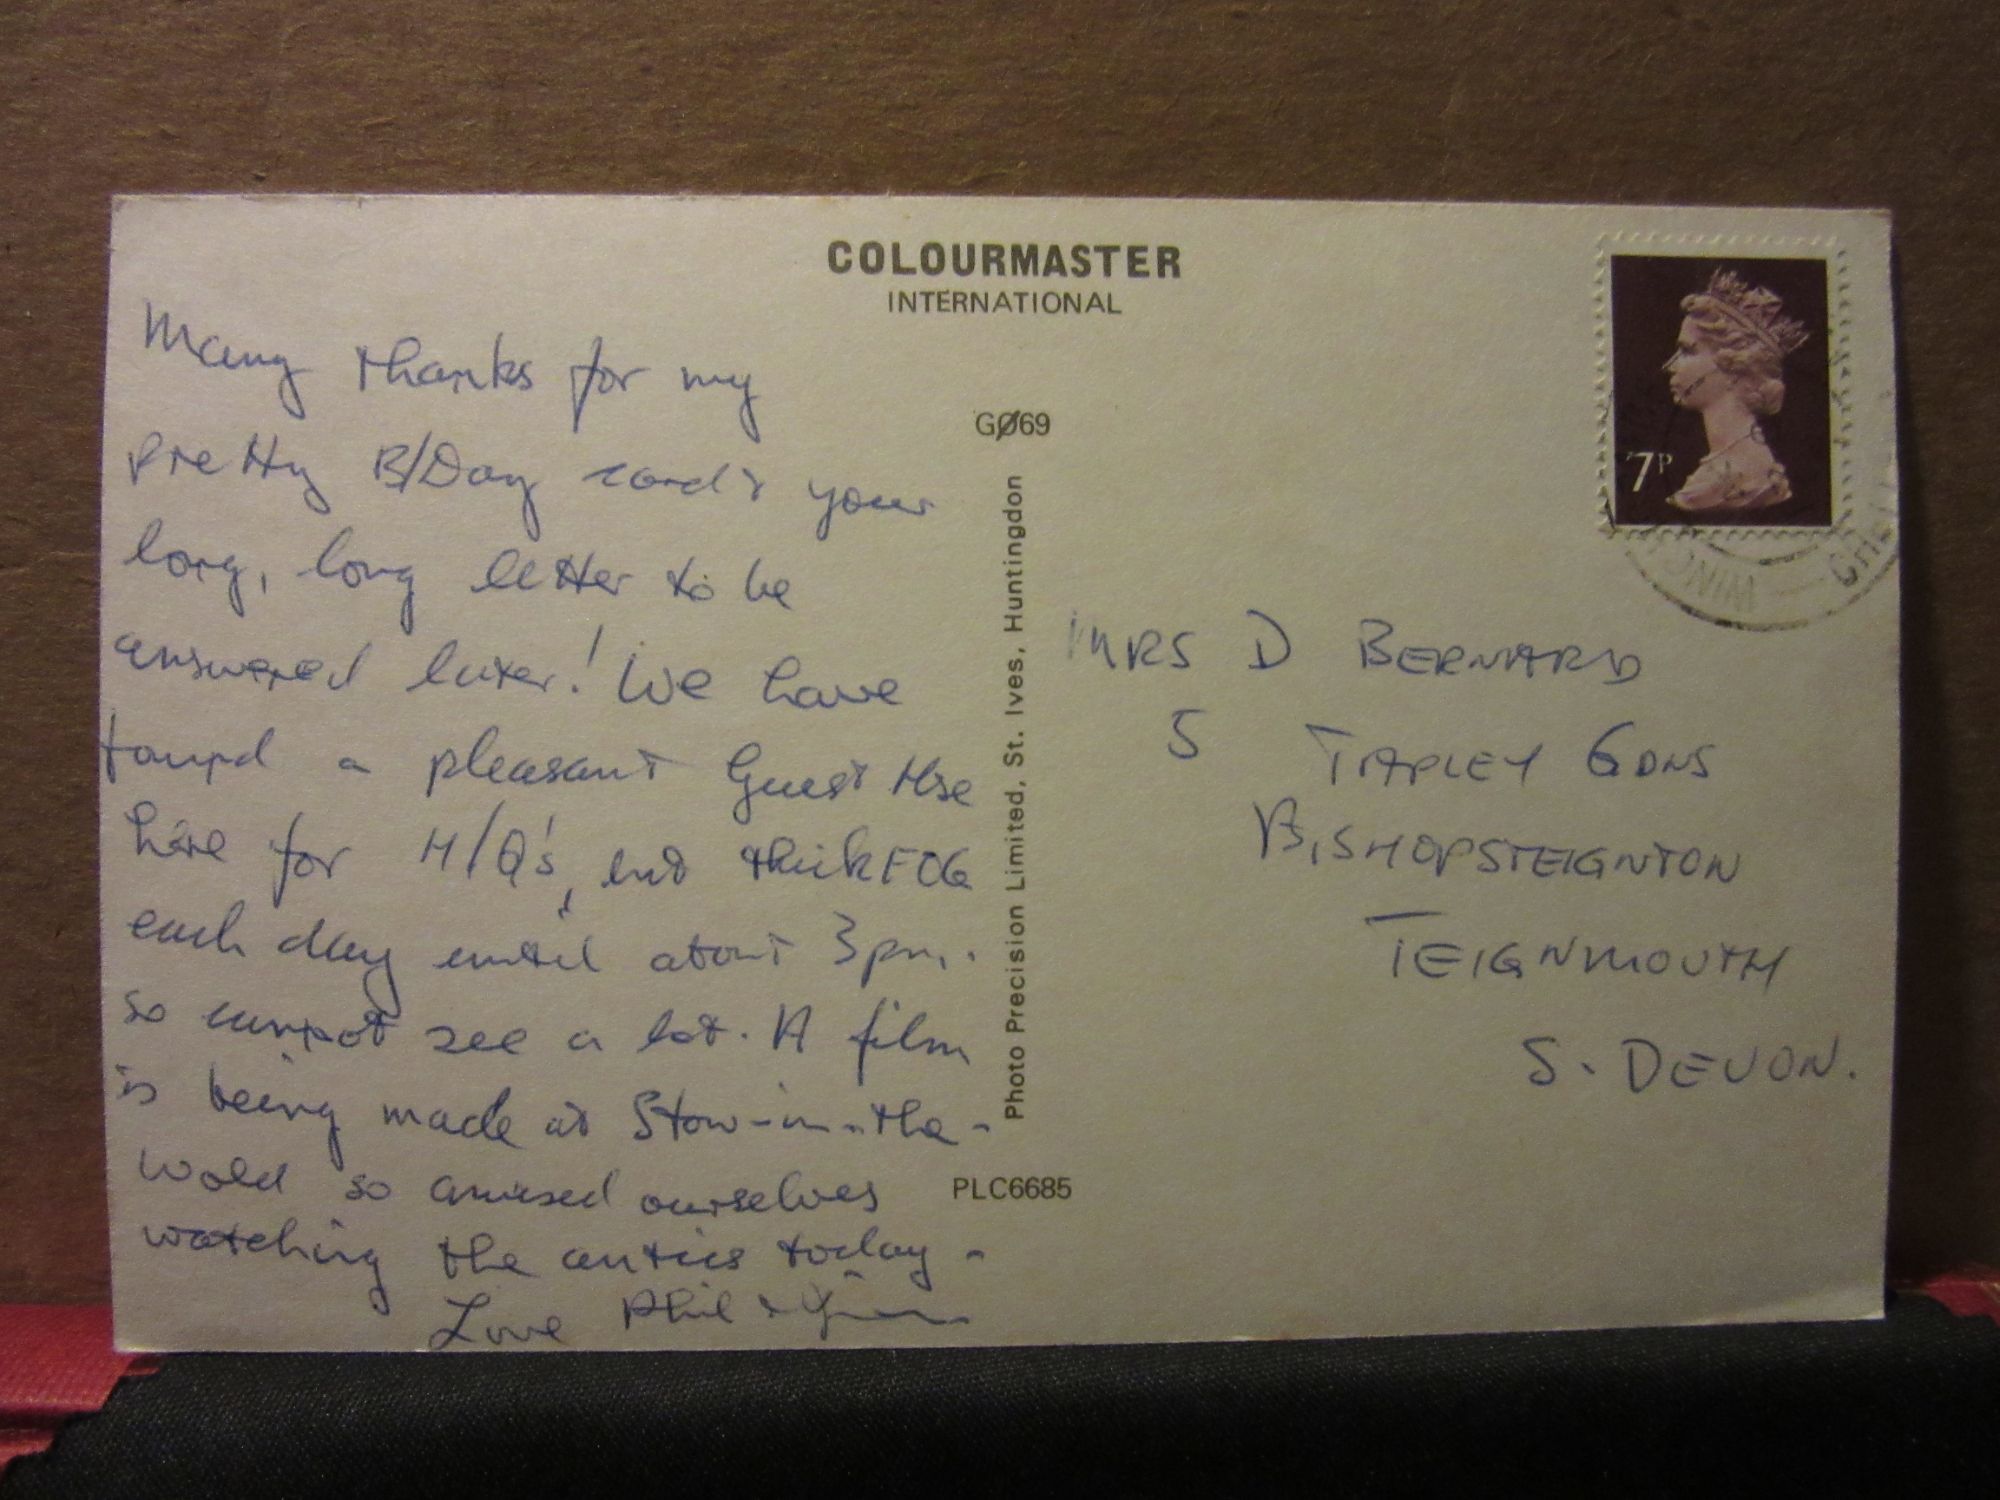 COLOURMASTER
INTERNATIONAL
Many thanks for my
pretty B/Day card & your
long, long letter to be
answered later! We have
found a pleasant Guest Hse
here for H/Q's, but thick FOG
each day until about 3pm.
so cannot see a lot. A film
is being made at Stow-in-the-
wold so amused ourselves
watching the antics today -
Love Phil &
G069
Photo Precision Limited, St. Ives, Huntingdon
PLC6685
7P
MRS D BERNARD
5 TAPLEY GDNS
BISHOPSTEIGNTON
TEIGNMOUTH
S. DEVON.